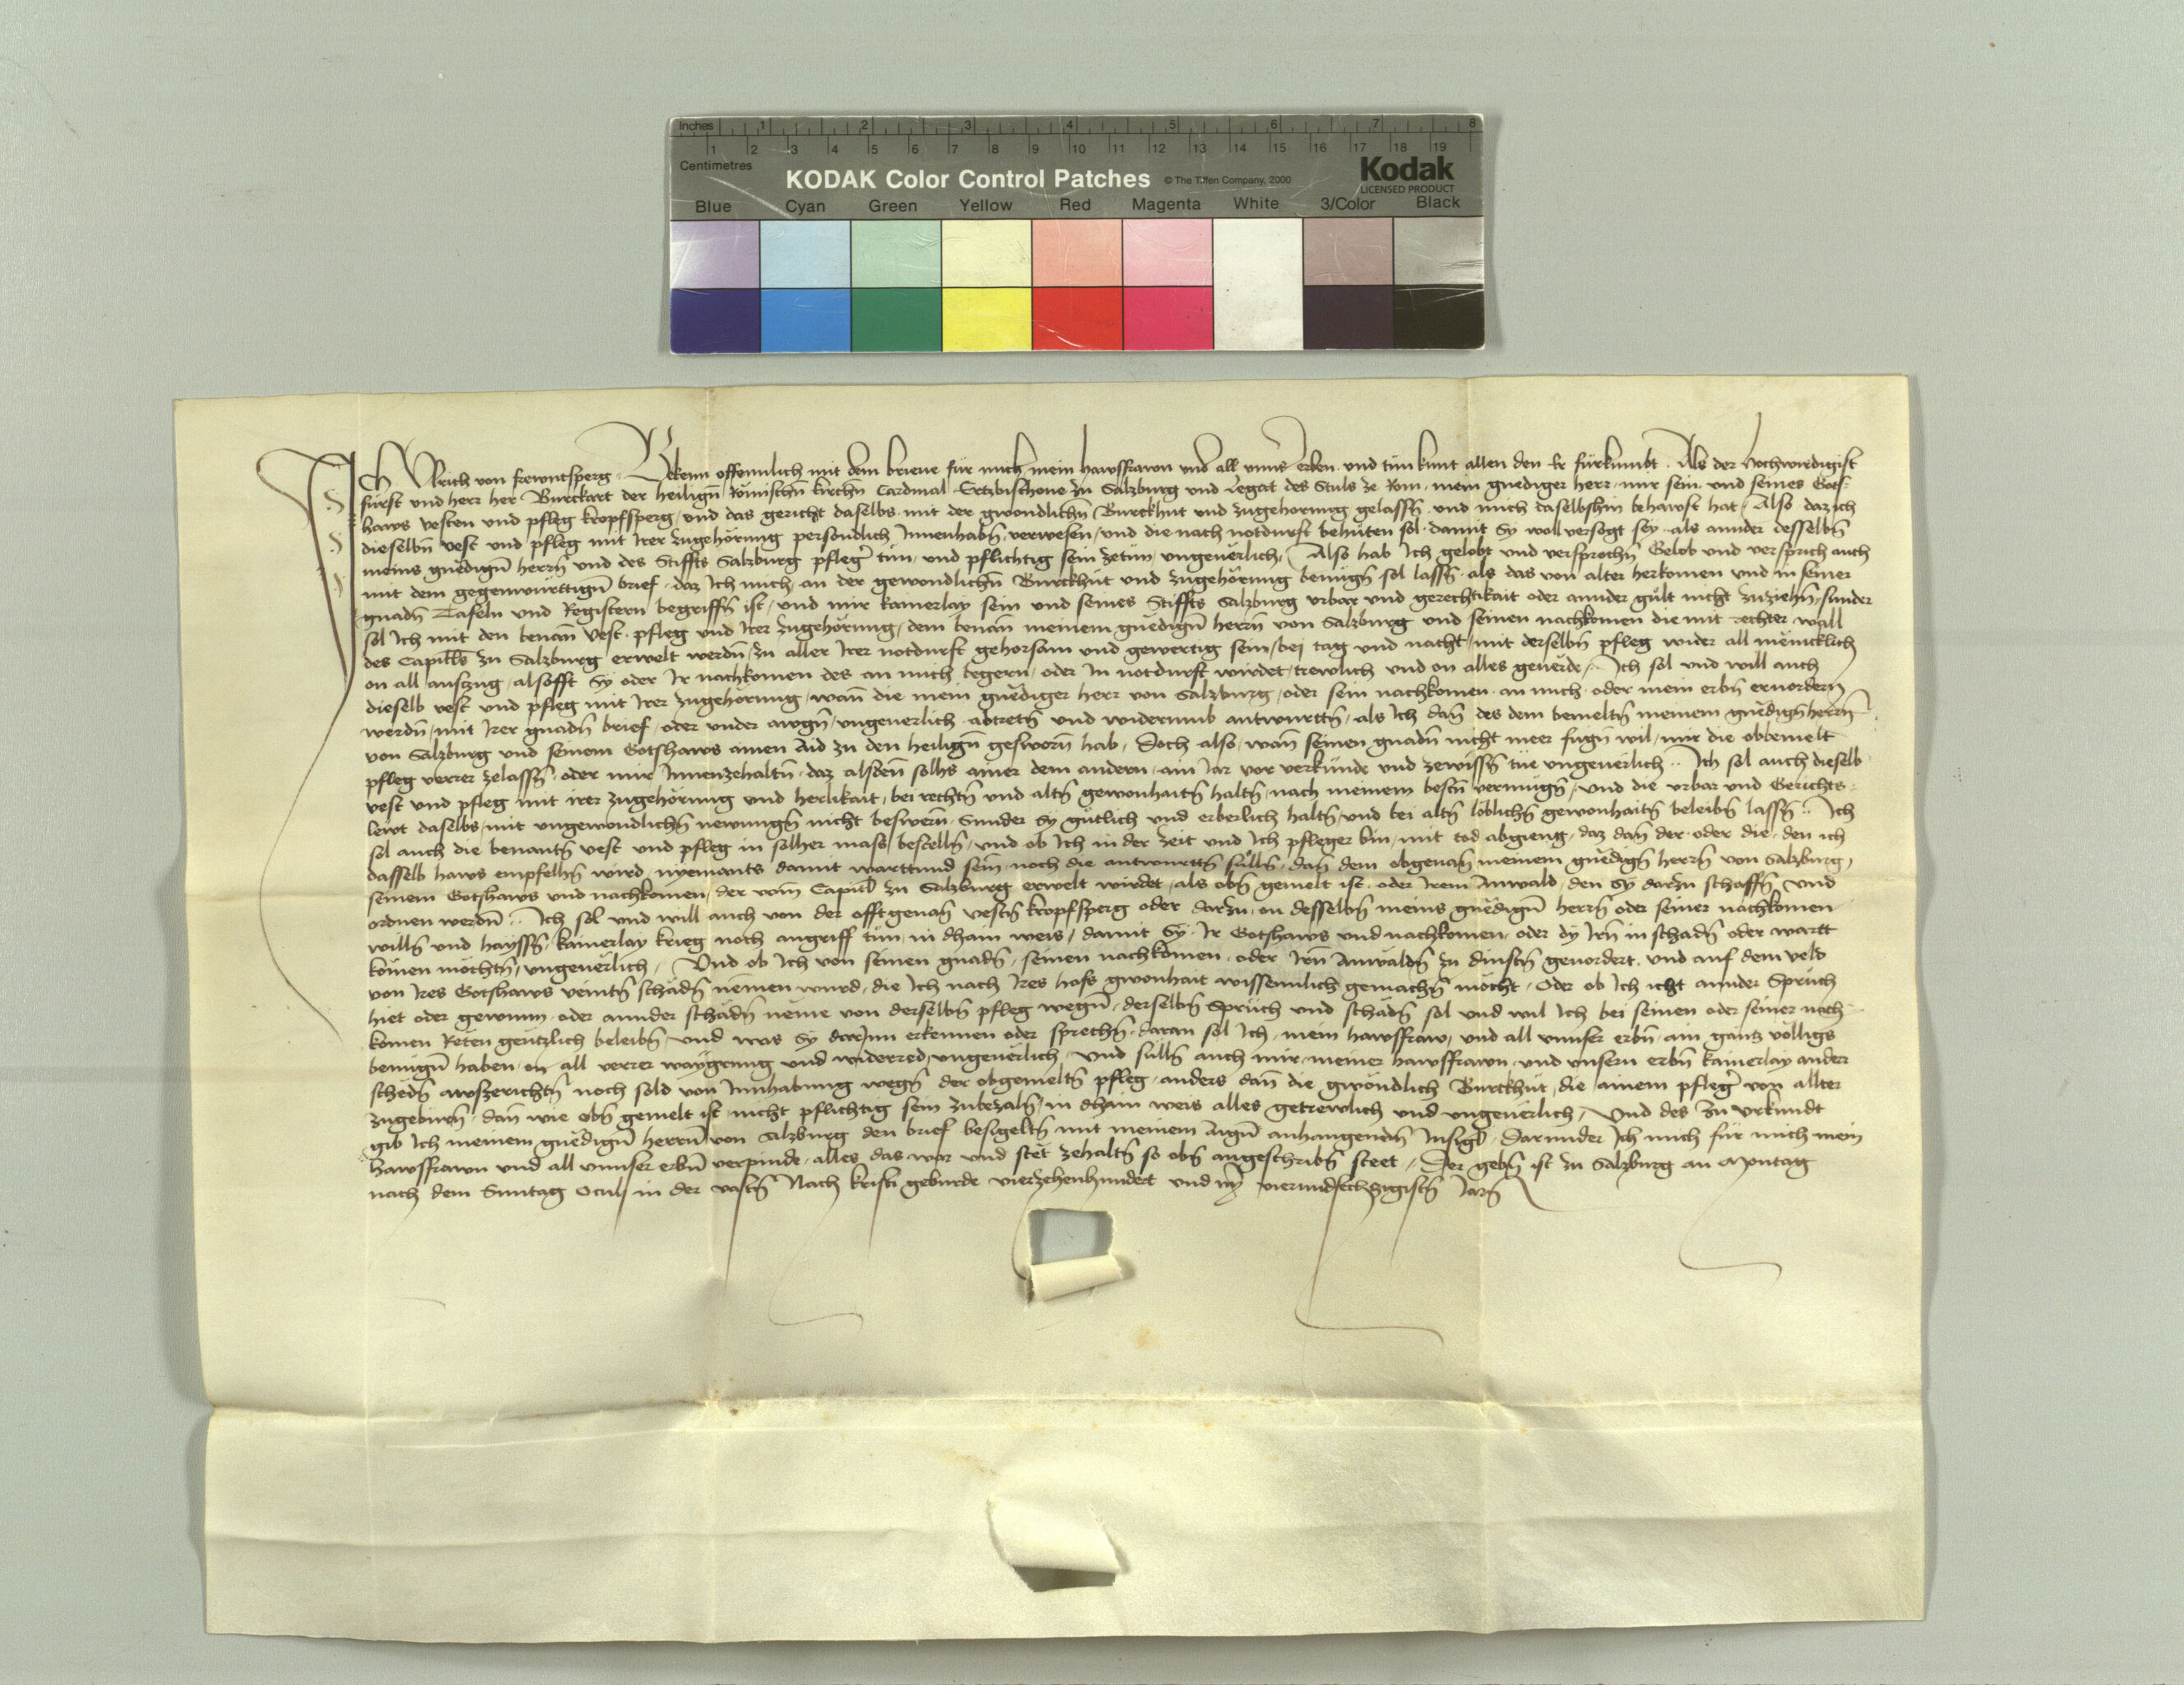 Inches 1 2 3 4 5 6 7 8
1 2 3 4 5 6 7 8 9 10 11 12 13 14 15 16 17 18 19
Centimetres
KODAK Color Control Patches © The Tiffen Company, 2000 Kodak
LICENSED PRODUCT
Blue Cyan Green Yellow Red Magenta White 3/Color Black
Ich Ulrich von frewntsperg Bekenn offennlich mit dem brieue für mich mein hawsfrawn und all unns̄ erben und tun kunt allen den Er fürkumbt. Als der hochwirdigist
fürst und herr her Burckart der heiligñ Römischñ kirchñ Cardinal Ertzbischoue zu Salzburg und Legat des Stuls ze Rom mein gnediger herr mir sein und seines Gots
haws vesten und pfleg kropfsperg und das gericht daselbs mit der gwondlichñ Burckhut und zugehorung gelassñ und mich daselbshin behawst hat Also daz ich
dieselbñ vest und pfleg mit Irer zugehörung persondlich Innenhabñ verwesen und die nach notdurft behüten sol damit Sy woll versorgt sey als annder desselbñ
meins gnedigñ herrñ und des Stiffts Salzburg pfleger tun und pflichtig sein zetun ungeuerlich Also hab Ich gelobt und versprochñ Gelob und versprich auch
mit dem gegenwürttigñ brief daz Ich mich an der gewondlichñ Burckhut und zugehörung benügñ sol lassñ als das von alter herkomen und in seiner
gnadñ Tafeln und Registern begriffñ ist und mir kainerlay sein und seines Stiffts Salzburg urbar und gerechtikait oder annder gült nicht zuziehñ sunder
sol Ich mit den benañ Vest pfleg und Irer zugehörung dem benañ meinem gnedigñ herrñ von Salzburg und seinen nachkomen die mit rechter wall
des Capittls zu Salzburg erwelt werdñ zu aller Irer notdurft gehorsam und gewertig sein bei tag und nacht mit derselbñ pfleg wider all menicklich
on all auszug alsofft Sy oder Ir nachkomen des an mich begern oder In notdurft wirdet trewlich und on alles geuerde Ich sol und will auch
dieselb vest und pfleg mit Irer zugehörung wañ die mein gnediger herr von Salzburg oder sein nachkomen an mich oder mein erbñ eruordern
werdñ mit Irer gnadñ brief oder under awgñ ungeuerlich abtretñ und widerumb antwurttñ als Ich dañ des dem bemeltñ meinem gnedigñ herrñ
von Salzburg und seinem Gotshaws ainen Aid zu den heiligñ gesworñ hab Doch also wañ seinen gnadñ nicht meer fugñ wil mir die obbemelt
pfleg verrer zelassñ oder mir Innenzehaltñ daz alsdeñ solhs ainer dem andern ain Iar vor verkünde und zewissñ tue ungeuerlich Ich sol auch dieselb
vest und pfleg mit irer zugehörung und herlikait bei rechtñ und altñ gewonhaitñ haltñ nach meinem bestñ vermügñ und die urbar und Gerichts
lewt daselbs mit ungewondlichñ newungñ nicht beswerñ Sunder Sy gütlich und erberlich haltñ und bei altñ löblichñ gewonhaitñ beleibñ lassñ Ich
sol auch die benantñ vest und pfleg in solher mass bestellñ und ob Ich in der zeit und Ich pfleger bin mit tod abgieng daz dañ der oder die den ich
dasselb haws empfelhñ wird nyemants damit warttund sein noch die antwurttñ süllñ dañ dem obgenañ meinem gnedigñ herrñ von Salzburg
seinem Gotshaws und nachkomen der vom Capitl zu Salzburg erwelt wirdet als obñ gemelt ist oder Irem Anwald den Sy darzu schaffñ und
ordnen werdñ Ich sol und will auch von der offtgenañ vestñ kropfsperg oder darzu on desselbñ meins gnedigñ herrñ oder seiner nachkomen
willñ und hayssñ kainerlay krieg noch angriff tun in dhain weis damit Sy Ir Gotshaws und nachkomen oder dy Irñ in schadñ oder wartt
komen möchtñ ungeuerlich Und ob Ich von seinen gnadñ seinen nachkomen oder Irñ Anwäldñ zu dinstñ geuordert und auf dem veld
von Ires Gotshaws veintñ schadñ nemen wurd die Ich nach Ires hofs gwonhait wissennlich gemachñ möcht Oder ob Ich icht annder Sprüch
hiet oder gewunn oder annder schadñ neme von derselbñ pfleg wegñ derselbñ Sprüch und schadñ sol und wil Ich bei seinen oder seiner nach
komen Reten genntzlich beleibñ und was Sy darjnn erkennen oder sprechñ daran sol Ich mein hawsfraw und all unnser erbñ ain gantz völligs
benügñ haben on all verrer waygrung und widerred ungeuerlich Und sullñ auch mir meiner hawsfrawn und unsern erbñ kainerlay ander
schedñ awszerichtñ noch sold von Innhabung wegñ der obgemeltñ pfleg anders dañ die gwöndlich Burckhut die ainem pfleger von allter
zugebürñ dañ wie obñ gemelt ist nicht pflichtig sein zubezalñ in dhain weis alles getrewlich und ungeuerlich Und des zu urkundt
gib Ich meinem gnedigñ herrñ von Salzburg den brief besigeltñ mit meinem Aigñ anhangendñ Insigl Darunder Ich mich für mich mein
hawsfrawn und all unnser erbñ verpinde alles das war und stet zehaltñ so obñ angeschribñ steet Der gebñ ist zu Salzburg an Montag
nach dem Sunntag Oculi in der vastñ Nach kristi geburde vierzehenhundert und im vierundsechzigistñ Iarñ